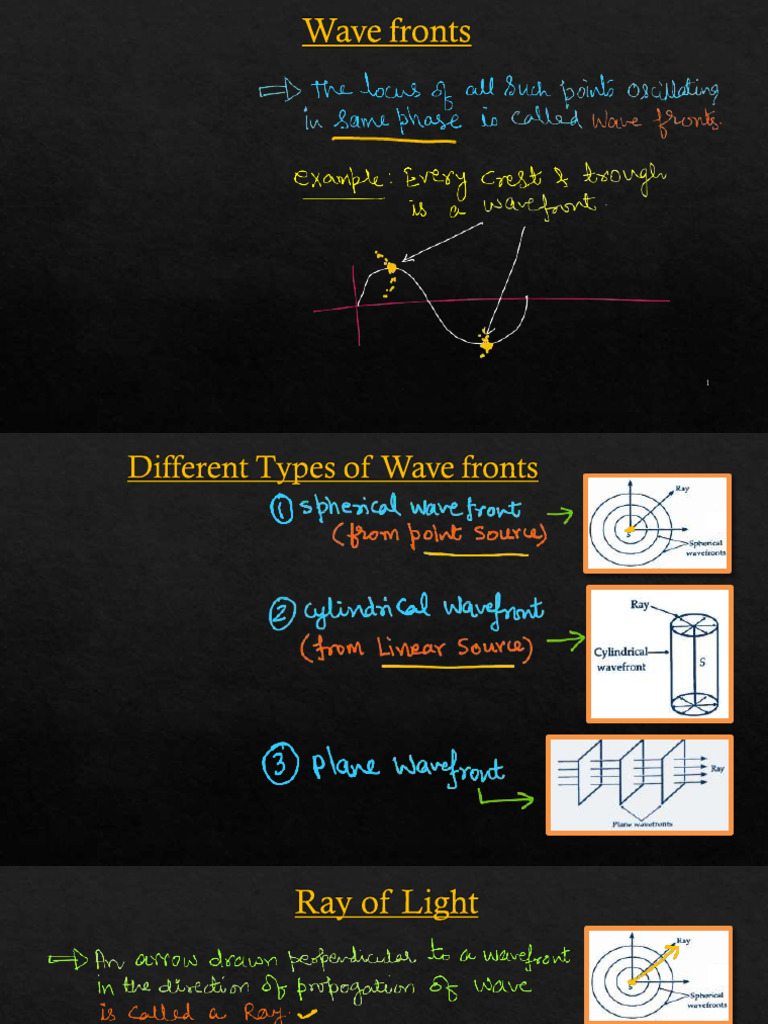 Wave fronts
The locus of all such points oscillating
in same phase is called wave fronts.
example: Every crest & trough
is a wavefront.
1
Different Types of Wave fronts
① spherical wavefront
(from point source)
Ray
S
Spherical
wavefronts
② cylindrical wavefront
(from Linear source)
Ray
Cylindrical
wavefront
S
③ plane wavefront
Ray
Plane wavefronts
Ray of Light
An arrow drawn perpendicular to a wavefront
in the direction of propogation of wave
is called a Ray.
Ray
S
Spherical
wavefronts